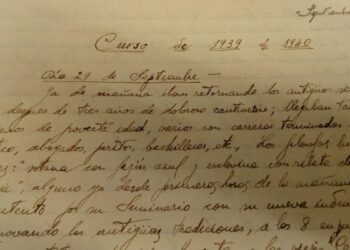 Septiembre
Curso de 1939 á 1940
Día 29 de Septiembre.—
Ya de mañana iban retornando los antiguos se
después de tres años de doloroso cautiverio; llegaban ta
de provecta edad, varios con carreras terminadas
co, abogados, peritos, bachilleres, etc., dos
"sotana con fijin azul y esclavina con ribete d
", alguno ya desde primeras horas de la mañana
por su Seminario con su nueva indum
novando las antiguas tradiciones, a las 8 en pu